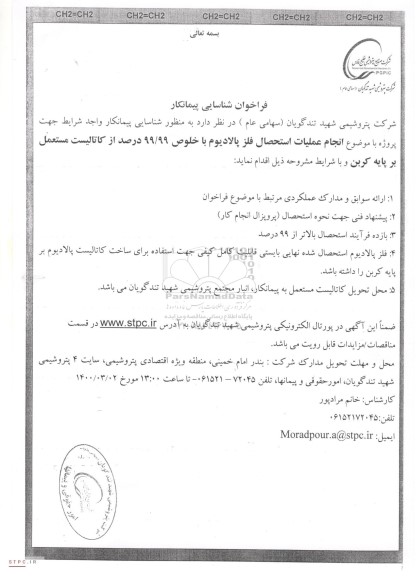 CH2=CH2 CH2=CH2 CH2=CH2 CH2=CH2 CH2=CH2
بسمه تعالی
PGPIC
شرکت پتروشیمی شهید تندگویان (سهامی عام)
فراخوان شناسایی پیمانکار
شرکت پتروشیمی شهید تندگویان (سهامی عام ) در نظر دارد به منظور شناسایی پیمانکار واجد شرایط جهت
پروژه با موضوع انجام عملیات استحصال فلز پالادیوم با خلوص ۹۹/۹۹ درصد از کاتالیست مستعمل
بر پایه کربن و با شرایط مشروحه ذیل اقدام نماید:
۱: ارائه سوابق و مدارک عملکردی مرتبط با موضوع فراخوان
۲: پیشنهاد فنی جهت نحوه استحصال (پروپزال انجام کار)
۳: بازده فرآیند استحصال بالاتر از ۹۹ درصد
۴: فلز پالادیوم استحصال شده نهایی بایستی قابلیت کامل کیفی جهت استفاده برای ساخت کاتالیست پالادیوم بر
پایه کربن را داشته باشد.
۵: محل تحویل کاتالیست مستعمل به پیمانکار، انبار مجتمع پتروشیمی شهید تندگویان می باشد.
ParsNamadData
ضمناً این آگهی در پورتال الکترونیکی پتروشیمی شهید تندگویان به آدرس www.stpc.ir در قسمت
مناقصات/مزایدات قابل رویت می باشد.
محل و مهلت تحویل مدارک شرکت : بندر امام خمینی، منطقه ویژه اقتصادی پتروشیمی، سایت ۴ پتروشیمی
شهید تندگویان، امورحقوقی و پیمانها، تلفن ۷۲۰۴۵ – ۰۶۱۵۲۱- تا ساعت ۱۳:۰۰ مورخ ۱۴۰۰/۰۳/۰۲
کارشناس: خانم مرادپور
تلفن:۰۶۱۵۲۱۷۲۰۴۵
ایمیل: Moradpour.a@stpc.ir
STPC.IR